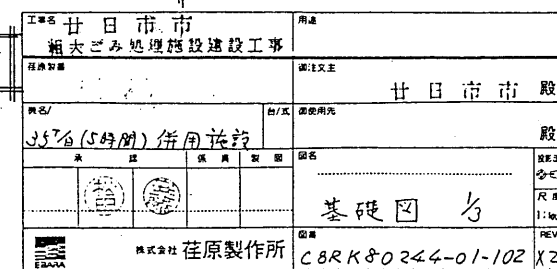 工事名 廿日市市
粗大ごみ処理施設建設工事
用途
荏原製番
御注文主
廿日市市 殿
機名/
台/式
御使用先
35T/日(5時間)併用施設
殿
承 認
係員
製図
図名
基礎図 1/3
尺度
EBARA
株式会社 荏原製作所
図番
CBRK80244-01-102
REV
X2